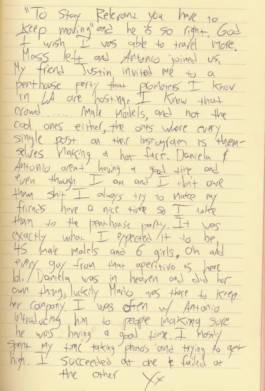 "To Stay Relevant you have to
keep moving" and he is so right. God
I wish I was able to travel more.
Moss left and Antonio joined us.
My friend Justin invited me to a
penthouse party that promoters I know
in LA are hosting. I know that
crowd.... male models, and not the
cool ones either, the ones where every
single post on their Instagram is them-
selves making a hot face. Daniela &
Antonio aren't having a good time and
even though I am and I dont owe
them shit I always try to make my
friends have a nice time so I take
them to the penthouse party. It was
exactly what I expected it to be,
45 male models and 6 girls. Oh and
every guy from that aperitivo is here
lol. Daniela was in heaven and did her
own thing, luckily Mario was there to keep
her company. I was w/ Antonio
introducing him to people making sure
he was having a good time. I mostly
spent my time taking photos and trying to get
high. I succeeded at one & failed at
the other